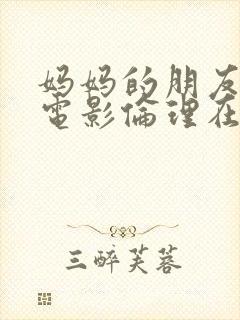 妈妈的朋友
電影倫理在
三醉芙蓉